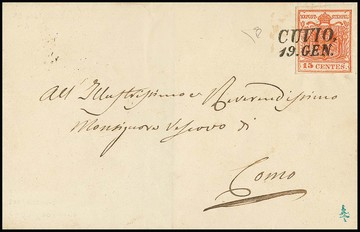 CUVIO.
19. GEN.
15 CENTES.
All' Illustrissimo e Reverendissimo
Monsignore Vescovo di
Como